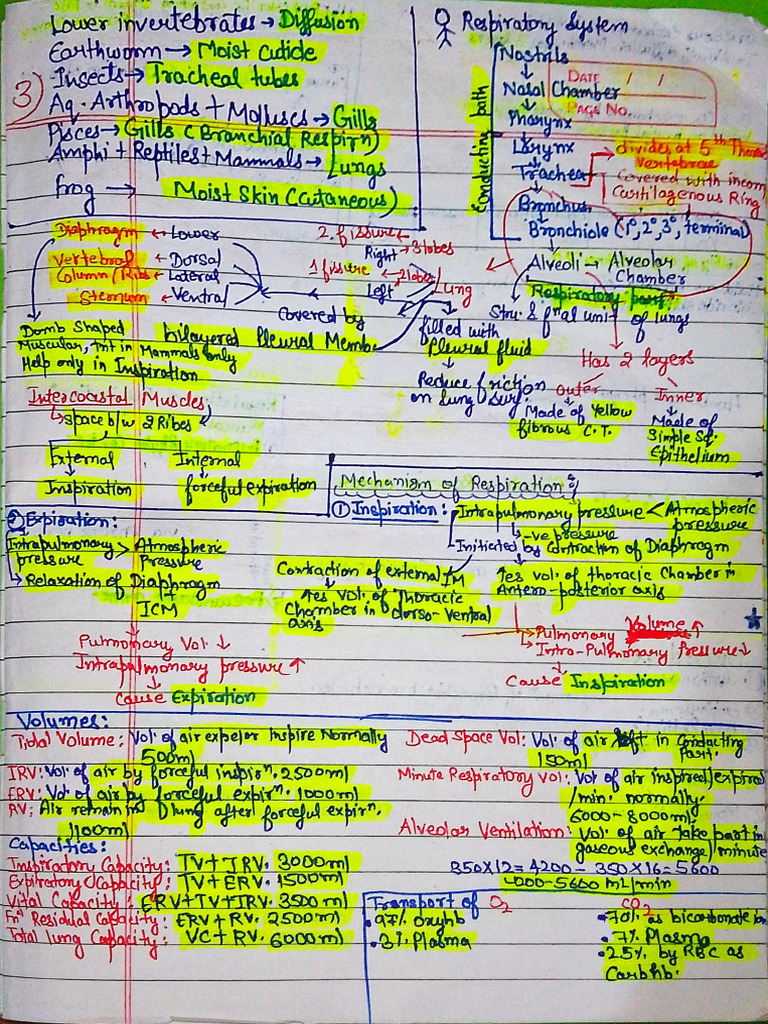 Lower invertebrates → Diffusion
Earthworm → Moist Cuticle
Insects → Tracheal tubes
Aq. Arthropods + Molluscs → Gills
Pisces → Gills (Branchial Respirn)
Amphi + Reptiles + Mammals → Lungs
frog → Moist Skin (Cutaneous)
3
Respiratory System
DATE / /
PAGE No.
Conducting path
Nostrils
Nasal Chamber
Pharynx
Larynx
Trachea
divides at 5th Thora
Vertebrae
Covered with incom
Cartilagenous Ring
Bronchus
Bronchiole (1°, 2°, 3°, terminal)
Alveoli → Alveolar
Chamber
Respiratory part
Stru. & fnal unit of lungs
Has 2 layers
outer
Made of Yellow
fibrous C.T.
Inner
Made of
Simple Sq.
Epithelium
Diaphragm ← Lower
Vertebral ← Dorsal
Column/Ribs ← Lateral
Sternum ← Ventral
2 fissure
Right → 3 lobes
1 fissure ← 2 lobes
Left
Lung
Covered by
bilayered Pleural Memb.
filled with
Pleural fluid
Reduce friction
on Lung surf.
Domb Shaped
Muscular, Tnt in Mammals only
Help only in Inspiration
Intercoastal Muscles
Space b/w 2 Ribes
External
Inspiration
Internal
forceful expiration
Mechanism of Respiration:
① Inspiration: Intrapulmonary pressure < Atmospheric
pressure
-ve pressure
Initiated by Contraction of Diaphragm
↑es vol. of thoracic Chamber in
Antero-posterior axis
Contraction of external IM
↑es vol. of Thoracic
Chamber in dorso-ventral
axis
Pulmonary Volume ↑
Intra-Pulmonary Pressure ↓
Cause Inspiration
② Expiration:
Intrapulmonary > Atmospheric
pressure Pressure
Relaxation of Diaphragm
+
ICM
Pulmonary Vol. ↓
Intrapulmonary pressure ↑
Cause Expiration
Volumes:
Tidal Volume: Vol. of air expel or Inspire Normally
500ml
IRV: Vol. of air by forceful inspirn. 2500ml
ERV: Vol. of air by forceful expirn. 1000ml
RV: Air remain in lung after forceful expirn.
1100ml
Dead Space Vol: Vol. of air left in Conducting
Part.
150ml
Minute Respiratory Vol: Vol of air inspired/expired
/min. normally.
6000-8000ml
Alveolar Ventilation: Vol. of air take part in
gaseous exchange/minute
350x12 = 4200 - 350x16 = 5600
4000-5600 mL/min
Capacities:
Inspiratory Capacity: TV + IRV. 3000ml
Expiratory Capacity: TV + ERV. 1500ml
Vital Capacity: ERV + TV + IRV. 3500ml
Fnl Residual Capacity: ERV + RV. 2500ml
Total lung Capacity: VC + RV. 6000ml
Transport of O2
• 97% Oxyhb
• 3% Plasma
CO2
• 70% as bicarbonate ion
• 7% Plasma
• 25% by RBC as
Carbhb.